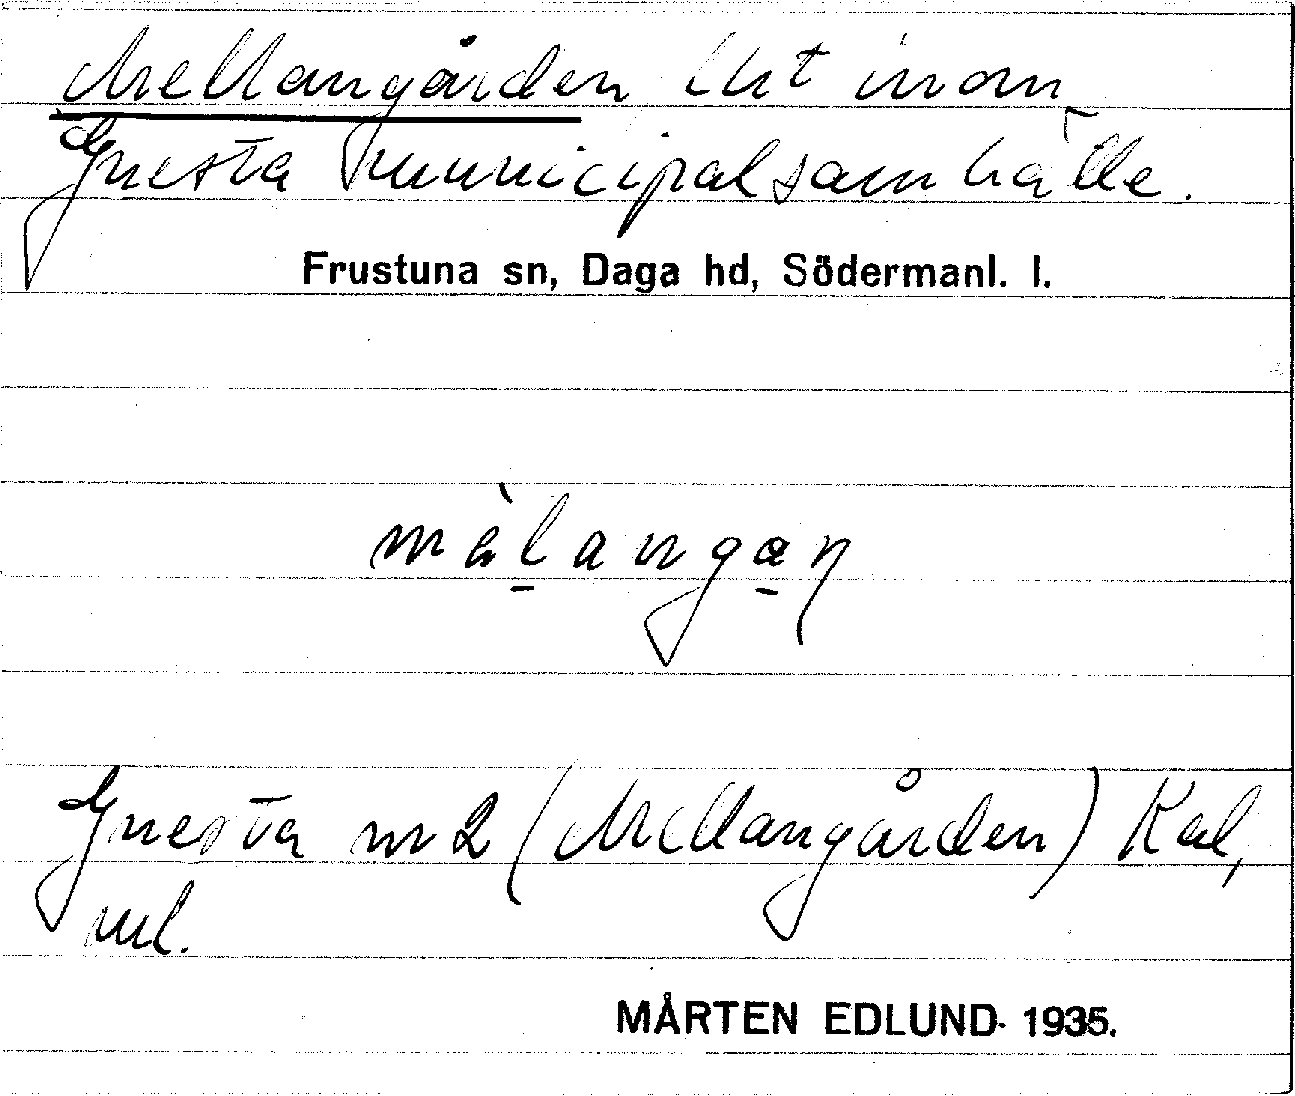 Mellangården lht inom
Gnesta municipalsamhälle.
Frustuna sn, Daga hd, Södermanl. l.
Gnesta nr 2 (Mellangården) Kad,
ml.
MÅRTEN EDLUND 1935.